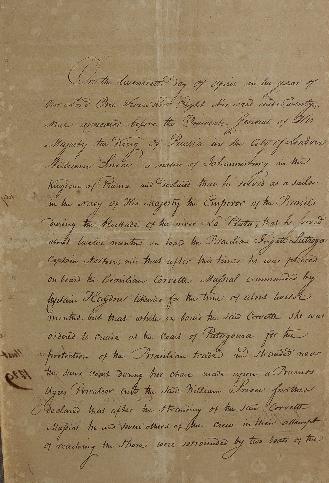 On the twentieth day of April in the year of
our Lord One Thousand Eight Hundred and Twenty
nine appeared before the Consulate General of His
Majesty the King of Prussia in the City of London
William a native of in the
Kingdom of and declared that he served as a sailor
in the navy of His Majesty the Emperor of the Brazils
during the Blockade of the river La Plata, that he served
about twelve months on board the Brazilian Frigate
Captain and that after this time he was placed
on board the Brazilian Corvette commanded by
Captain for the time of about twelve
months, but that while on board the said Corvette she was
ordered to cruise at the Coast of Patagonia for the
protection of the Brazilian trade and stranded near
the same Coast during her chase made upon a Buenos
Ayres Privateer and the said William further
declared that after the stranding of the said Corvette
he and several others of the crew in their attempt
of reaching the Shore were surrounded by two boats of the